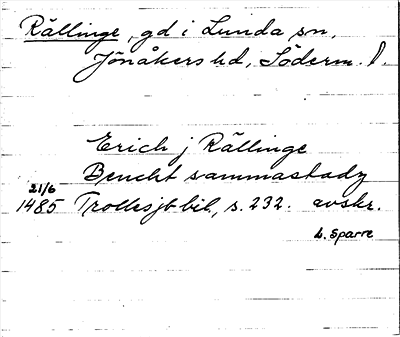 Rällinge, gd i Lunda sn,
Jönåkers hd, Söderm. l.
Erich j Rällinge
Bencht sammastadz
21/6
1485 Trollesjb bil, s. 232. avskr.
L. Sparre